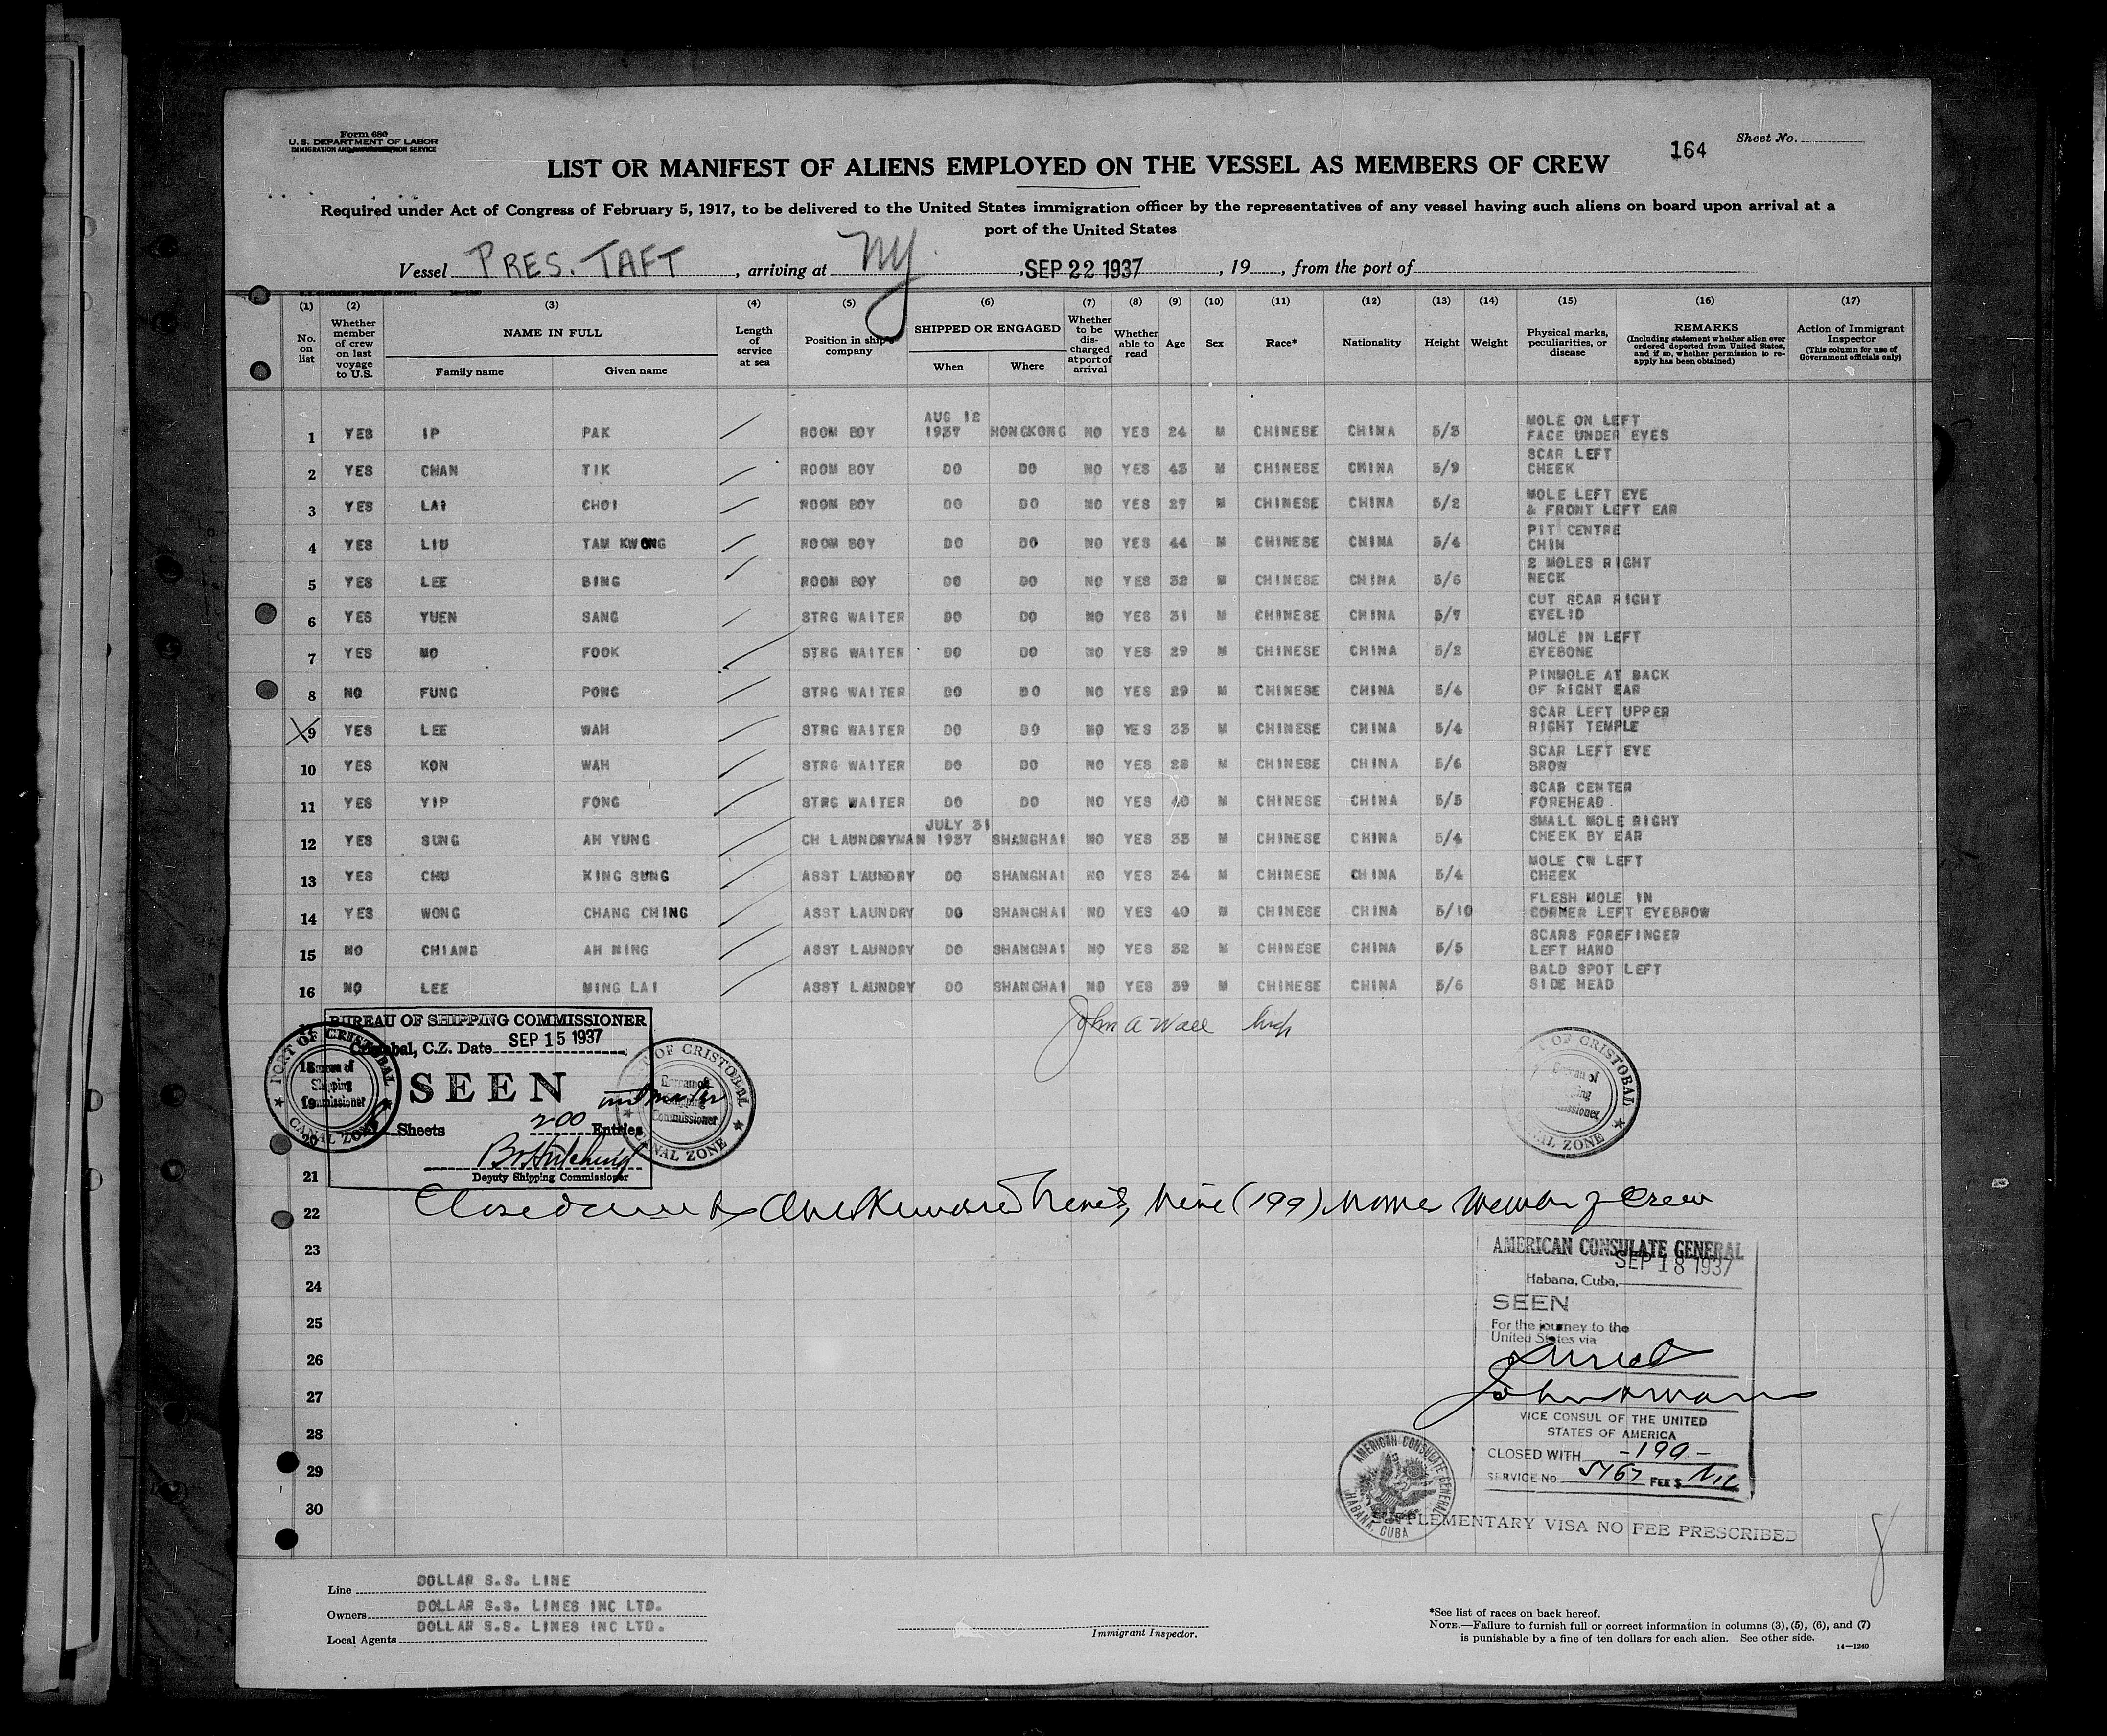 Form 680
U. S. DEPARTMENT OF LABOR
IMMIGRATION AND SERVICE
164
Sheet No.
LIST OR MANIFEST OF ALIENS EMPLOYED ON THE VESSEL AS MEMBERS OF CREW
Required under Act of Congress of February 5, 1917, to be delivered to the United States immigration officer by the representatives of any vessel having such aliens on board upon arrival at a
port of the United States
Vessel PRES. TAFT, arriving at NY, SEP 22 1937, 19, from the port of
(1) (2) (3) (4) (5) (6) (7) (8) (9) (10) (11) (12) (13) (14) (15) (16) (17)
No. on list
Whether member of crew on last voyage to U.S.
NAME IN FULL
Family name Given name
Length of service at sea
Position in ship's company
SHIPPED OR ENGAGED
When Where
Whether to be discharged at port of arrival
Whether able to read
Age
Sex
Race*
Nationality
Height
Weight
Physical marks, peculiarities, or disease
REMARKS
(Including statement whether alien ever ordered deported from United States, and if so, whether permission to reapply has been obtained)
Action of Immigrant Inspector
(This column for use of Government officials only)
1 YES IP PAK ROOM BOY AUG 12 1937 HONGKONG NO YES 24 M CHINESE CHINA 5/3 MOLE ON LEFT FACE UNDER EYES
2 YES CHAN TIK ROOM BOY DO DO NO YES 43 M CHINESE CHINA 5/9 SCAR LEFT CHEEK
3 YES LAI CHOI ROOM BOY DO DO NO YES 27 M CHINESE CHINA 5/2 MOLE LEFT EYE & FRONT LEFT EAR
4 YES LIU TAM KWONG ROOM BOY DO DO NO YES 44 M CHINESE CHINA 5/4 PIT CENTRE CHIN
5 YES LEE BING ROOM BOY DO DO NO YES 32 M CHINESE CHINA 5/6 2 MOLES RIGHT NECK
6 YES YUEN SANG STRG WAITER DO DO NO YES 31 M CHINESE CHINA 5/7 CUT SCAR RIGHT EYELID
7 YES MO FOOK STRG WAITER DO DO NO YES 29 M CHINESE CHINA 5/2 MOLE IN LEFT EYEBONE
8 NO FUNG PONG STRG WAITER DO DO NO YES 29 M CHINESE CHINA 5/4 PINHOLE AT BACK OF RIGHT EAR
9 YES LEE WAH STRG WAITER DO DO NO YES 33 M CHINESE CHINA 5/4 SCAR LEFT UPPER RIGHT TEMPLE
10 YES KON WAH STRG WAITER DO DO NO YES 28 M CHINESE CHINA 5/6 SCAR LEFT EYE BROW
11 YES YIP FONG STRG WAITER DO DO NO YES 40 M CHINESE CHINA 5/5 SCAR CENTER FOREHEAD
12 YES SUNG AH YUNG CH LAUNDRYMAN JULY 31 1937 SHANGHAI NO YES 33 M CHINESE CHINA 5/4 SMALL MOLE RIGHT CHEEK BY EAR
13 YES CHU KING SUNG ASST LAUNDRY DO SHANGHAI NO YES 34 M CHINESE CHINA 5/4 MOLE ON LEFT CHEEK
14 YES WONG CHANG CHING ASST LAUNDRY DO SHANGHAI NO YES 40 M CHINESE CHINA 5/10 FLESH MOLE IN CORNER LEFT EYEBROW
15 NO CHIANG AH NING ASST LAUNDRY DO SHANGHAI NO YES 32 M CHINESE CHINA 5/5 SCARS FOREFINGER LEFT HAND
16 NO LEE MING LAI ASST LAUNDRY DO SHANGHAI NO YES 39 M CHINESE CHINA 5/6 BALD SPOT LEFT SIDE HEAD
BUREAU OF SHIPPING COMMISSIONER
Cristobal, C.Z. Date SEP 15 1937
SEEN
Sheets 200 Entries
Deputy Shipping Commissioner
PORT OF CRISTOBAL
Bureau of Shipping Commissioner
CANAL ZONE
PORT OF CRISTOBAL
Bureau of Shipping Commissioner
CANAL ZONE
John A Wall
OF CRISTOBAL
ZONE
21
22 One Hundred Ninety Nine (199) Names Members of Crew
23
24
25
26
27
28
29
30
AMERICAN CONSULATE GENERAL
SEP 18 1937
Habana, Cuba,
SEEN
For the journey to the
United States via
VICE CONSUL OF THE UNITED
STATES OF AMERICA
CLOSED WITH -199-
SERVICE No. 5767 FEE $ Nil
AMERICAN CONSULATE GENERAL
HABANA, CUBA
SUPPLEMENTARY VISA NO FEE PRESCRIBED
Line DOLLAR S.S. LINE
Owners DOLLAR S.S. LINES INC LTD.
Local Agents DOLLAR S.S. LINES INC LTD.
Immigrant Inspector.
*See list of races on back hereof.
NOTE.—Failure to furnish full or correct information in columns (3), (5), (6), and (7)
is punishable by a fine of ten dollars for each alien. See other side.
14—1240